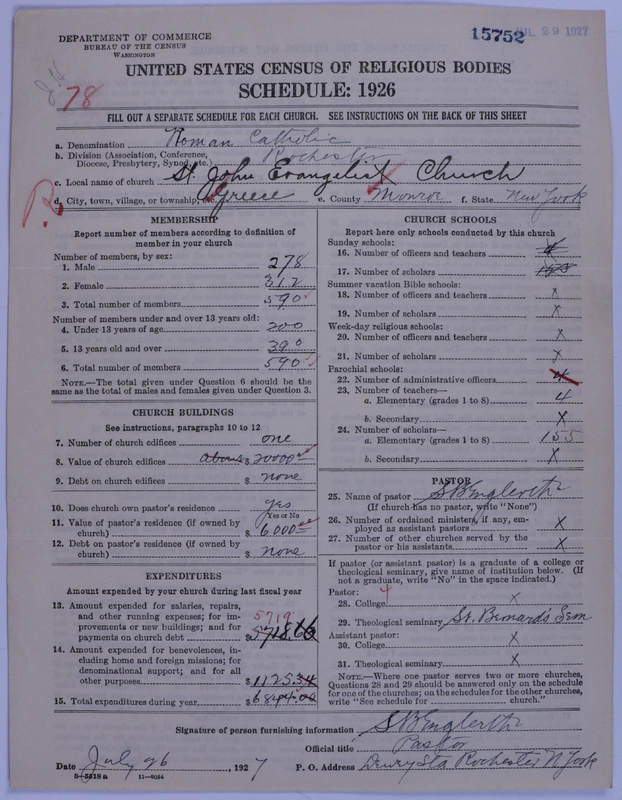 15752 JUL 29 1927
DEPARTMENT OF COMMERCE
BUREAU OF THE CENSUS
WASHINGTON
78
UNITED STATES CENSUS OF RELIGIOUS BODIES
SCHEDULE: 1926
FILL OUT A SEPARATE SCHEDULE FOR EACH CHURCH. SEE INSTRUCTIONS ON THE BACK OF THIS SHEET
a. Denomination Roman Catholic
b. Division (Association, Conference, Diocese, Presbytery, Synod, etc.) Rochester
c. Local name of church St. John Evangelist Church
d. City, town, village, or township, etc. Greece e. County Monroe f. State New York
R
MEMBERSHIP
Report number of members according to definition of
member in your church
Number of members, by sex:
1. Male 278
2. Female 312
3. Total number of members 590
Number of members under and over 13 years old:
4. Under 13 years of age 200
5. 13 years old and over 390
6. Total number of members 590
NOTE.—The total given under Question 6 should be the
same as the total of males and females given under Question 3.
CHURCH BUILDINGS
See instructions, paragraphs 10 to 12
7. Number of church edifices one
8. Value of church edifices about $ 20000 00
9. Debt on church edifices $ none
10. Does church own pastor's residence yes
Yes or No
11. Value of pastor's residence (if owned by
church) $ 6000 00
12. Debt on pastor's residence (if owned by
church) $ none
EXPENDITURES
Amount expended by your church during last fiscal year
13. Amount expended for salaries, repairs,
and other running expenses; for im- 5719
provements or new buildings; and for
payments on church debt $ 5718.66
14. Amount expended for benevolences, in-
cluding home and foreign missions; for
denominational support; and for all
other purposes $ 1125.34
15. Total expenditures during year $ 6844.00
CHURCH SCHOOLS
Report here only schools conducted by this church
Sunday schools:
16. Number of officers and teachers 4
17. Number of scholars 155
Summer vacation Bible schools:
18. Number of officers and teachers x
19. Number of scholars x
Week-day religious schools:
20. Number of officers and teachers x
21. Number of scholars x
Parochial schools:
22. Number of administrative officers 4
23. Number of teachers—
a. Elementary (grades 1 to 8) 4
b. Secondary x
24. Number of scholars—
a. Elementary (grades 1 to 8) 155
b. Secondary x
PASTOR
25. Name of pastor SB Englerth
(If church has no pastor, write "None")
26. Number of ordained ministers, if any, em-
ployed as assistant pastors x
27. Number of other churches served by the
pastor or his assistants x
If pastor (or assistant pastor) is a graduate of a college or
theological seminary, give name of institution below. (If
not a graduate, write "No" in the space indicated.)
Pastor: 4
28. College x
29. Theological seminary St. Bernard's Sem
Assistant pastor:
30. College x
31. Theological seminary x
NOTE.—Where one pastor serves two or more churches,
Questions 28 and 29 should be answered only on the schedule
for one of the churches; on the schedules for the other churches,
write "See schedule for church."
Signature of person furnishing information SB Englerth
Official title Pastor
Date July 26, 1927 P. O. Address Drury Sta Rochester N York
8-5318a 11-9054